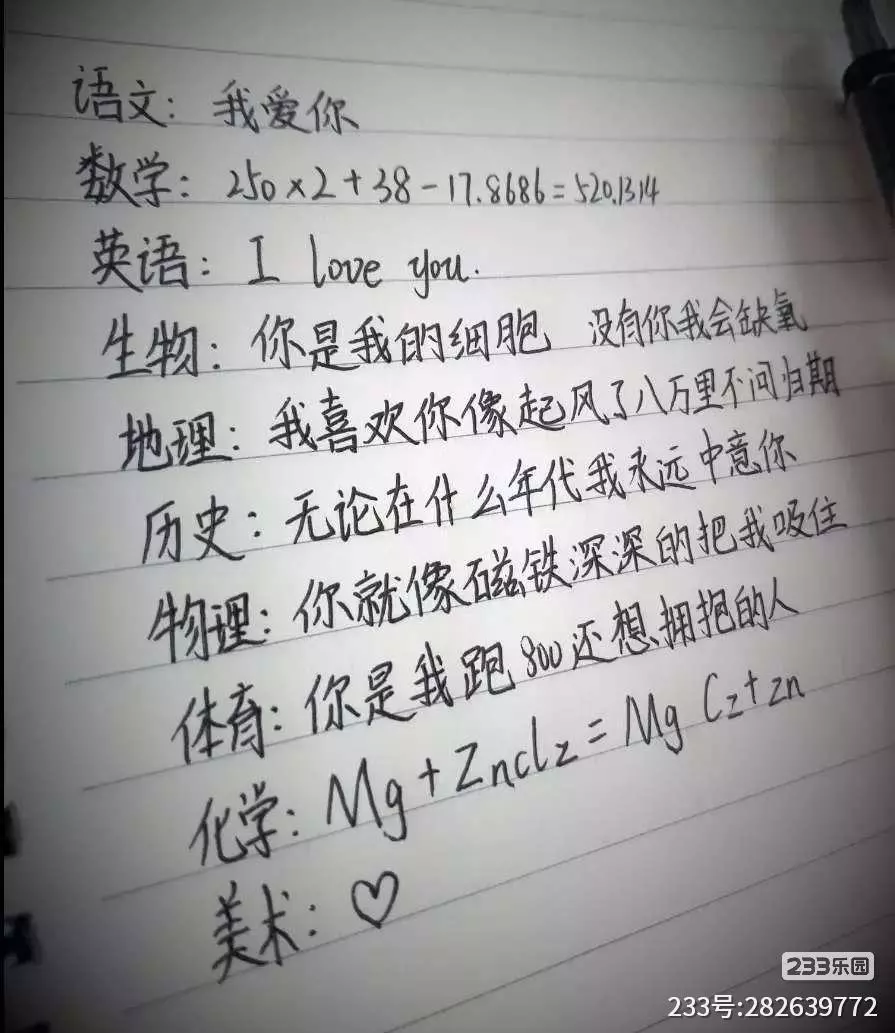 语文：我爱你
数学：250×2+38-17.8686=520.1314
英语：I love you.
生物：你是我的细胞 没有你我会缺氧
地理：我喜欢你像起风了八万里不问归期
历史：无论在什么年代我永远中意你
物理：你就像磁铁深深的把我吸住
体育：你是我跑800还想拥抱的人
化学：Mg+Zncl2=Mg C2+zn
美术：♡
233乐园
233号:282639772